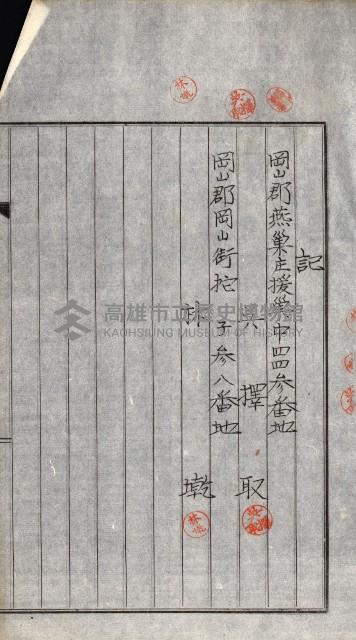 記
岡山郡燕巢庄援巢中四四参番地
擇取
岡山郡岡山街子参八番地
林乾
高雄市立歷史博物館
KAOHSIUNG MUSEUM OF HISTORY